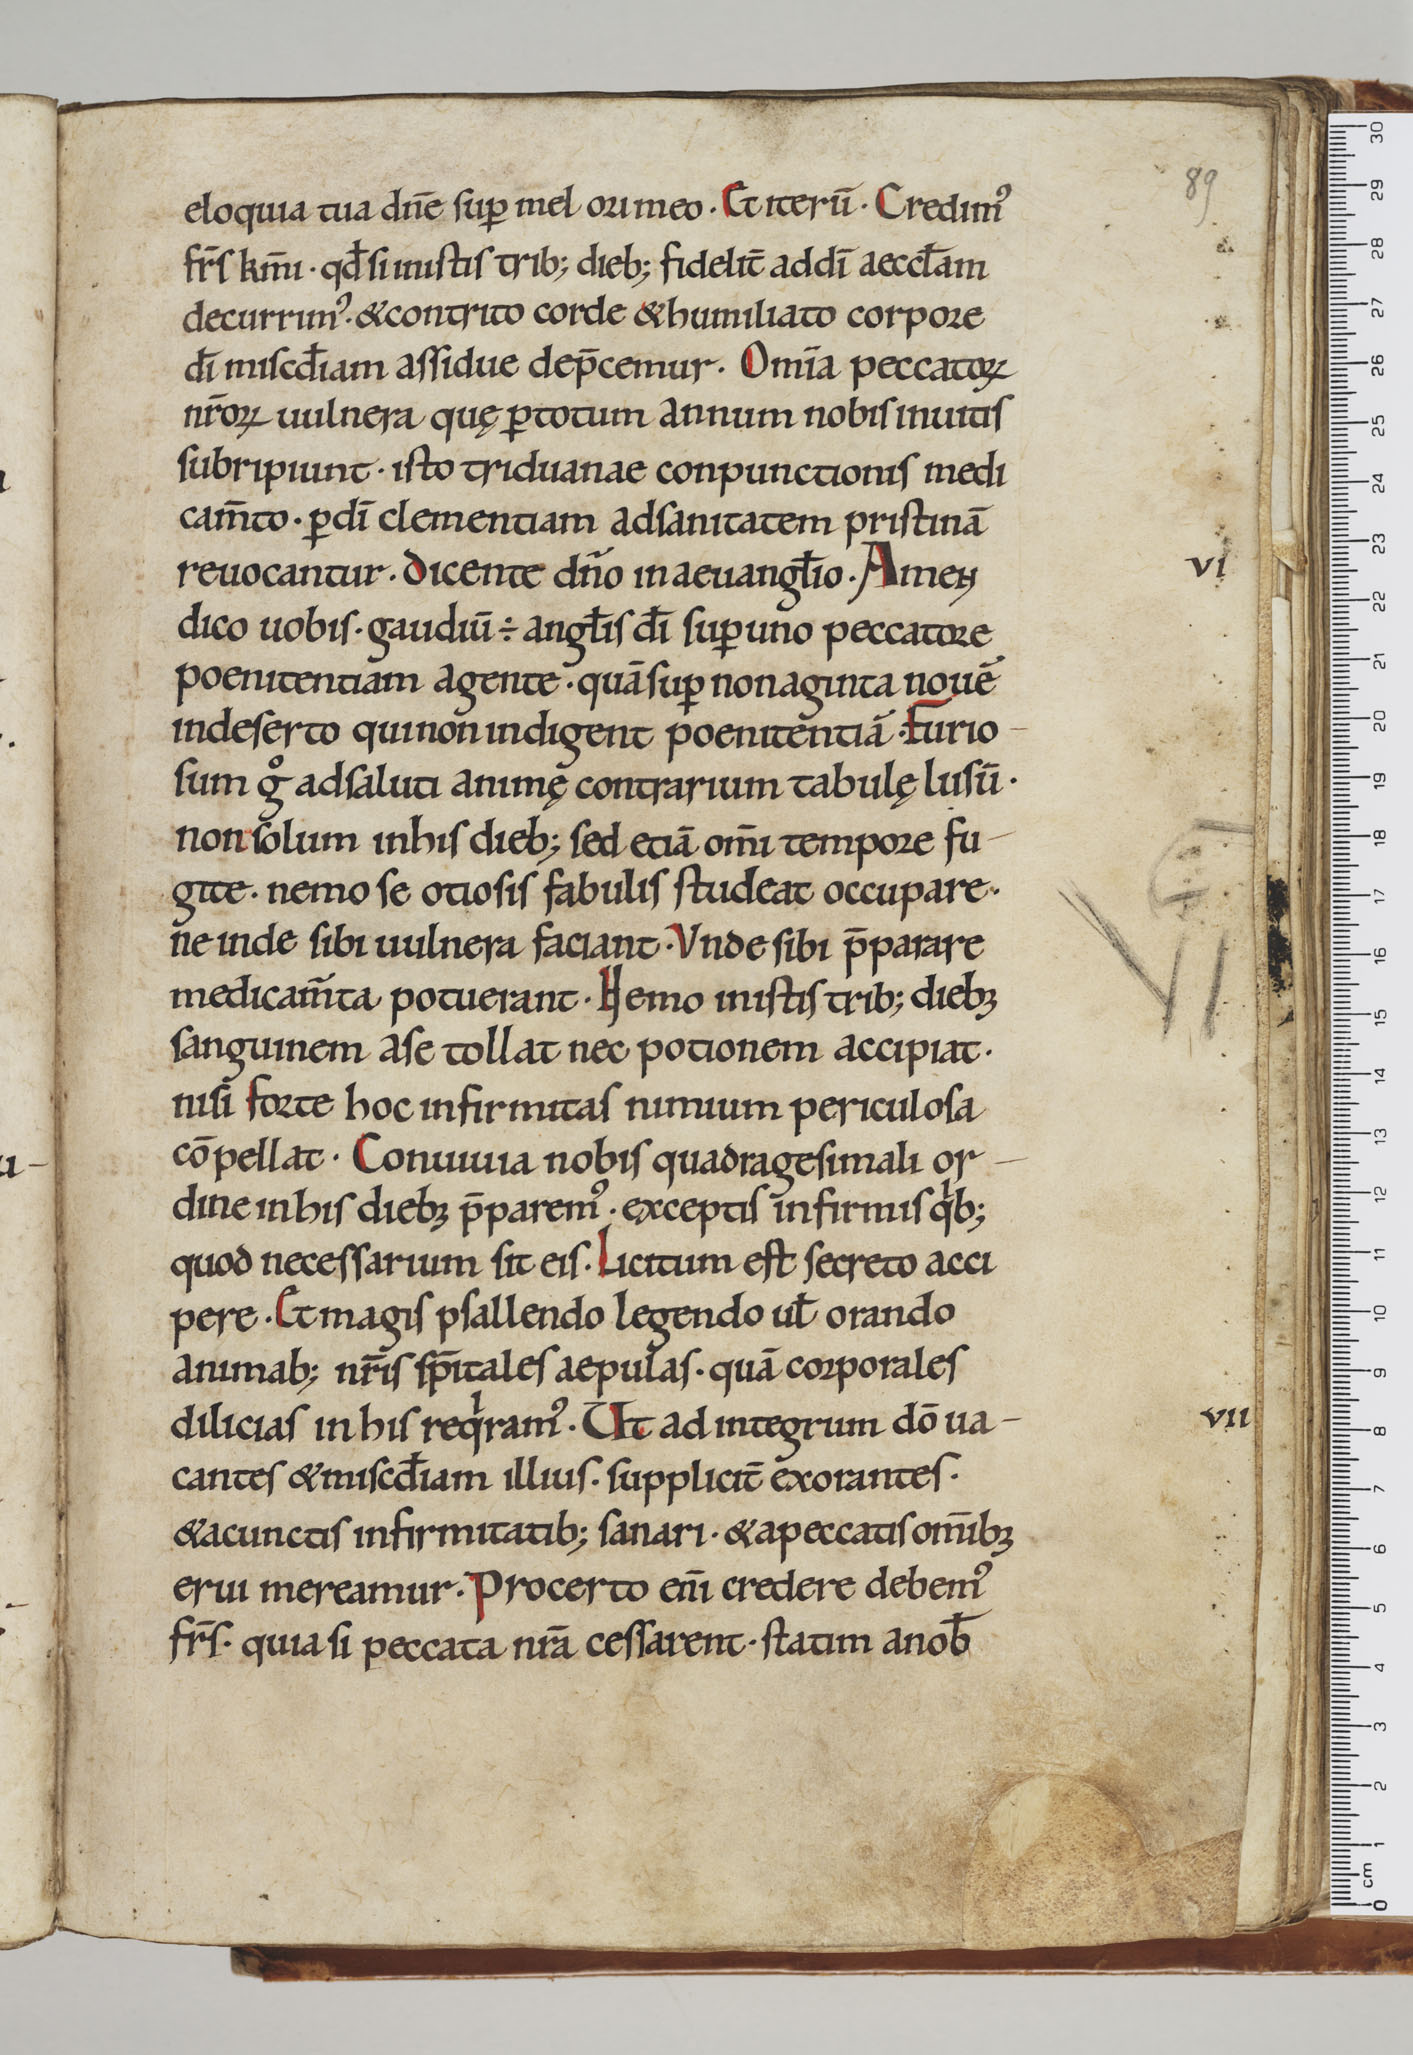 89
eloquia tua dn̄e sup̱ mel ori meo · Et iterū · Credim᷒
fr̄s km̄i · qđ si in istis trib; dieb; fidelit̄ ad dī aeccłam
decurrim᷒ · & contrito corde & humiliato corpore
dī miscđiam assidue dep̄cemur · Om̄ia peccatoꝝ
nr̄oꝝ uulnera quę ꝑ totum annum nobis inuitis
subripiunt · isto triduanae conpunctionis medi
cam̄to · ꝑ dī clementiam ad sanitatem pristinā
reuocantur · Dicente dn̄o in aeuangłio · Amen
vi
dico uobis · gaudiū ÷ angłis dī suꝑ uno peccatore
poenitentiam agente · quā suꝑ nonaginta nouē
in deserto qui non indigent poenitentiā · Furio-
sum gͦ ad saluti animę contrarium tabulę lusū ·
non solum in his dieb; sed etiā om̄i tempore fu-
gite · nemo se otiosis fabulis studeat occupare ·
ne inde sibi uulnera faciant · Vnde sibi p̄parare
medicam̄ta potuerant · Nemo in istis trib; diebꝫ
sanguinem a se tollat nec potionem accipiat ·
VI
nisi forte hoc infirmitas nimium periculosa
cōpellat · Conuiuia nobis quadragesimali or-
dine in his diebꝫ p̄parem᷒ · exceptis infirmis qⁱb;
quod necessarium sit eis · Licitum est secreto acci
pere · Et magis psallendo legendo uł orando
animab; nr̄is sp̄itales aepulas · quā corporales
dilicias in his reqⁱram᷒ · Ut ad integrum dō ua-
vii
cantes & miscđiam illius · supplicit̄ exorantes ·
& a cunctis infirmitatib; sanari · & a peccatis om̄ibꝫ
erui mereamur · Pro certo eni̅ credere debem᷒
fr̄s · quia si peccata nr̄a cessarent · statim a nob̄